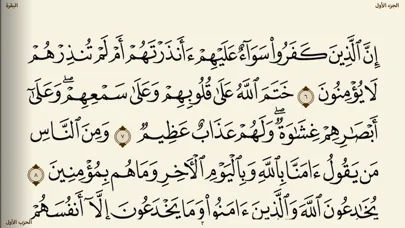 الجزء الأول
البقرة
إِنَّ ٱلَّذِينَ كَفَرُوا۟ سَوَآءٌ عَلَيْهِمْ ءَأَنذَرْتَهُمْ أَمْ لَمْ تُنذِرْهُمْ
لَا يُؤْمِنُونَ ٦ خَتَمَ ٱللَّهُ عَلَىٰ قُلُوبِهِمْ وَعَلَىٰ سَمْعِهِمْ ۖ وَعَلَىٰٓ
أَبْصَـٰرِهِمْ غِشَـٰوَةٌ ۖ وَلَهُمْ عَذَابٌ عَظِيمٌ ٧ وَمِنَ ٱلنَّاسِ
مَن يَقُولُ ءَامَنَّا بِٱللَّهِ وَبِٱلْيَوْمِ ٱلْـَٔاخِرِ وَمَا هُم بِمُؤْمِنِينَ ٨
يُخَـٰدِعُونَ ٱللَّهَ وَٱلَّذِينَ ءَامَنُوا۟ وَمَا يَخْدَعُونَ إِلَّآ أَنفُسَهُمْ
الحزب الأول
٢